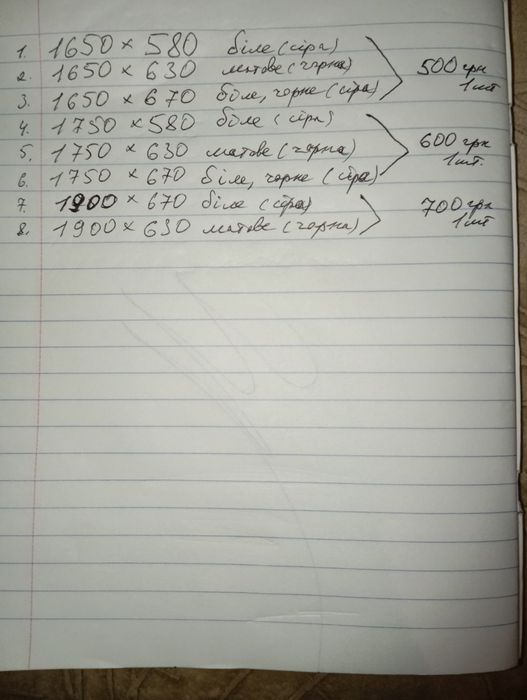 1. 1650 × 580 біле (сіра)
2. 1650 × 630 матове (чорна)
3. 1650 × 670 біле, чорне (сіра)
500 грн
1 шт
4. 1750 × 580 біле (сіра)
5. 1750 × 630 матове (чорна)
6. 1750 × 670 біле, чорне (сіра)
600 грн
1 шт.
7. 1900 × 670 біле (сіра)
8. 1900 × 630 матове (чорна)
700 грн
1 шт